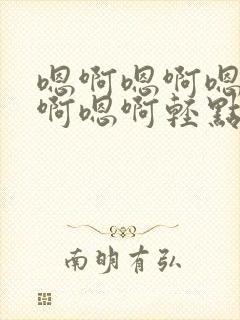 嗯啊嗯啊嗯
啊嗯啊轻點
南明有弘